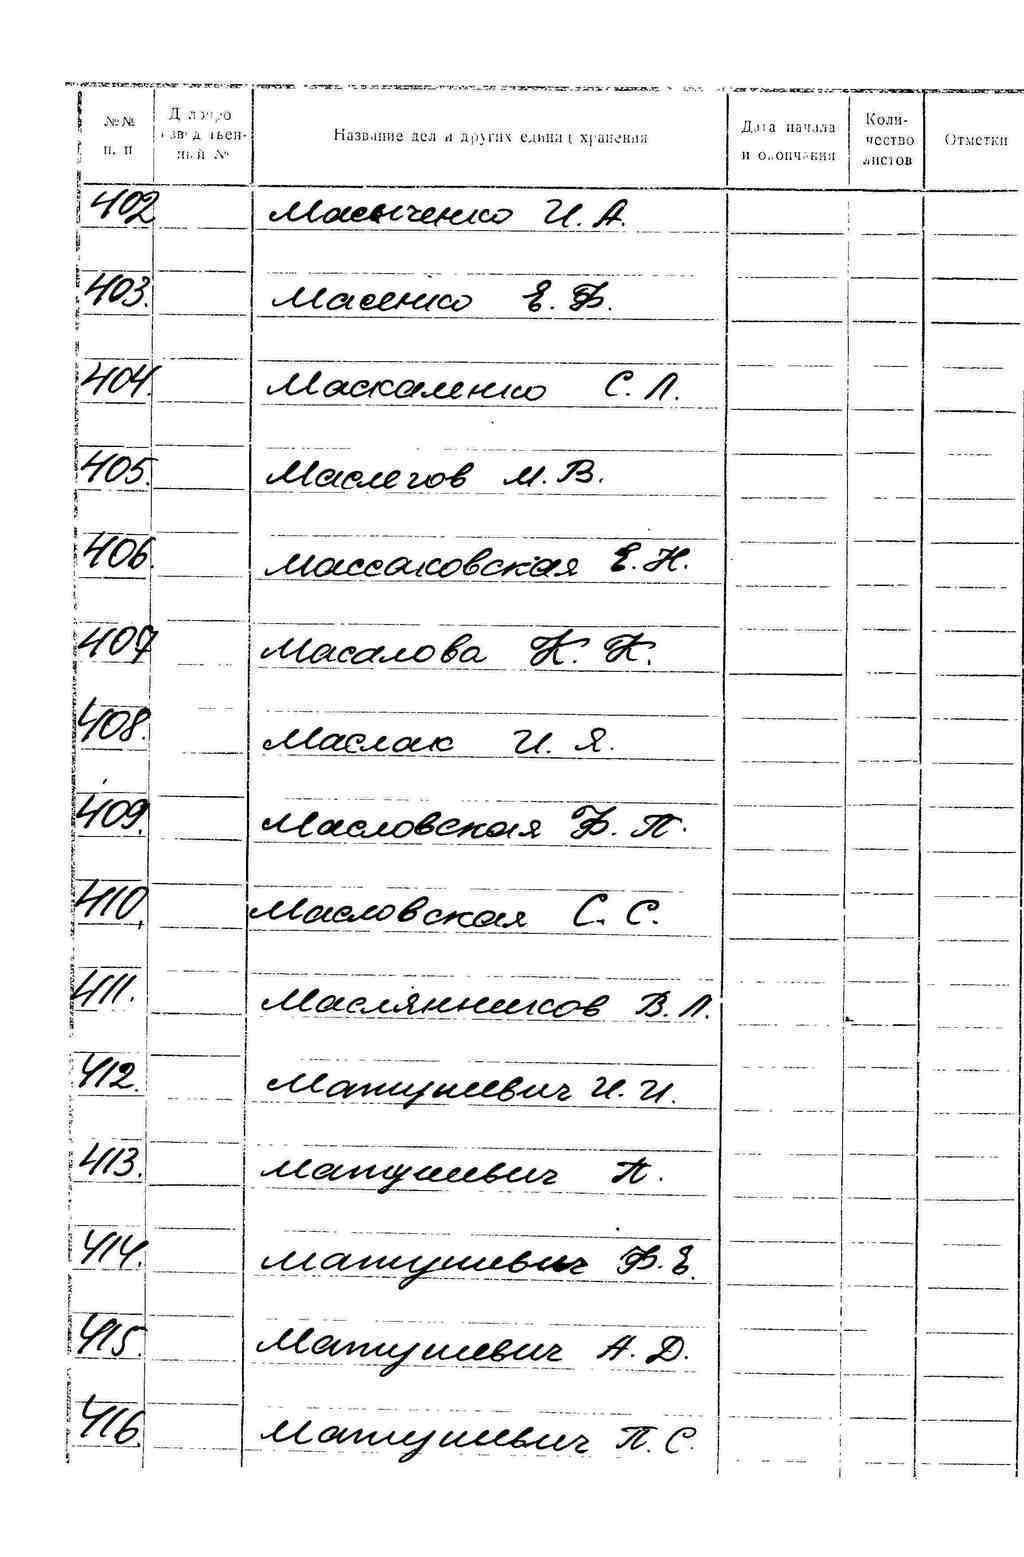 №№ п. п | Делопроизводственный № | Название дел и других единиц хранения | Дата начала и окончания | Количество листов | Отметки
402 Масенченко И. А.
403. Масенко Е. Ф.
404. Маскаленко С. Л.
405. Маслегов М. В.
406. Массаковская Е. Н.
407 Масалова К. К.
408. Маслак И. Я.
409. Масловская Ф. П.
410. Масловская С. С.
411. Маслянников В. Л.
412. Матушевич И. И.
413. Матушевич П.
414. Матушевич Ф. Е.
415. Матушевич А. Д.
416. Матушевич П. С.